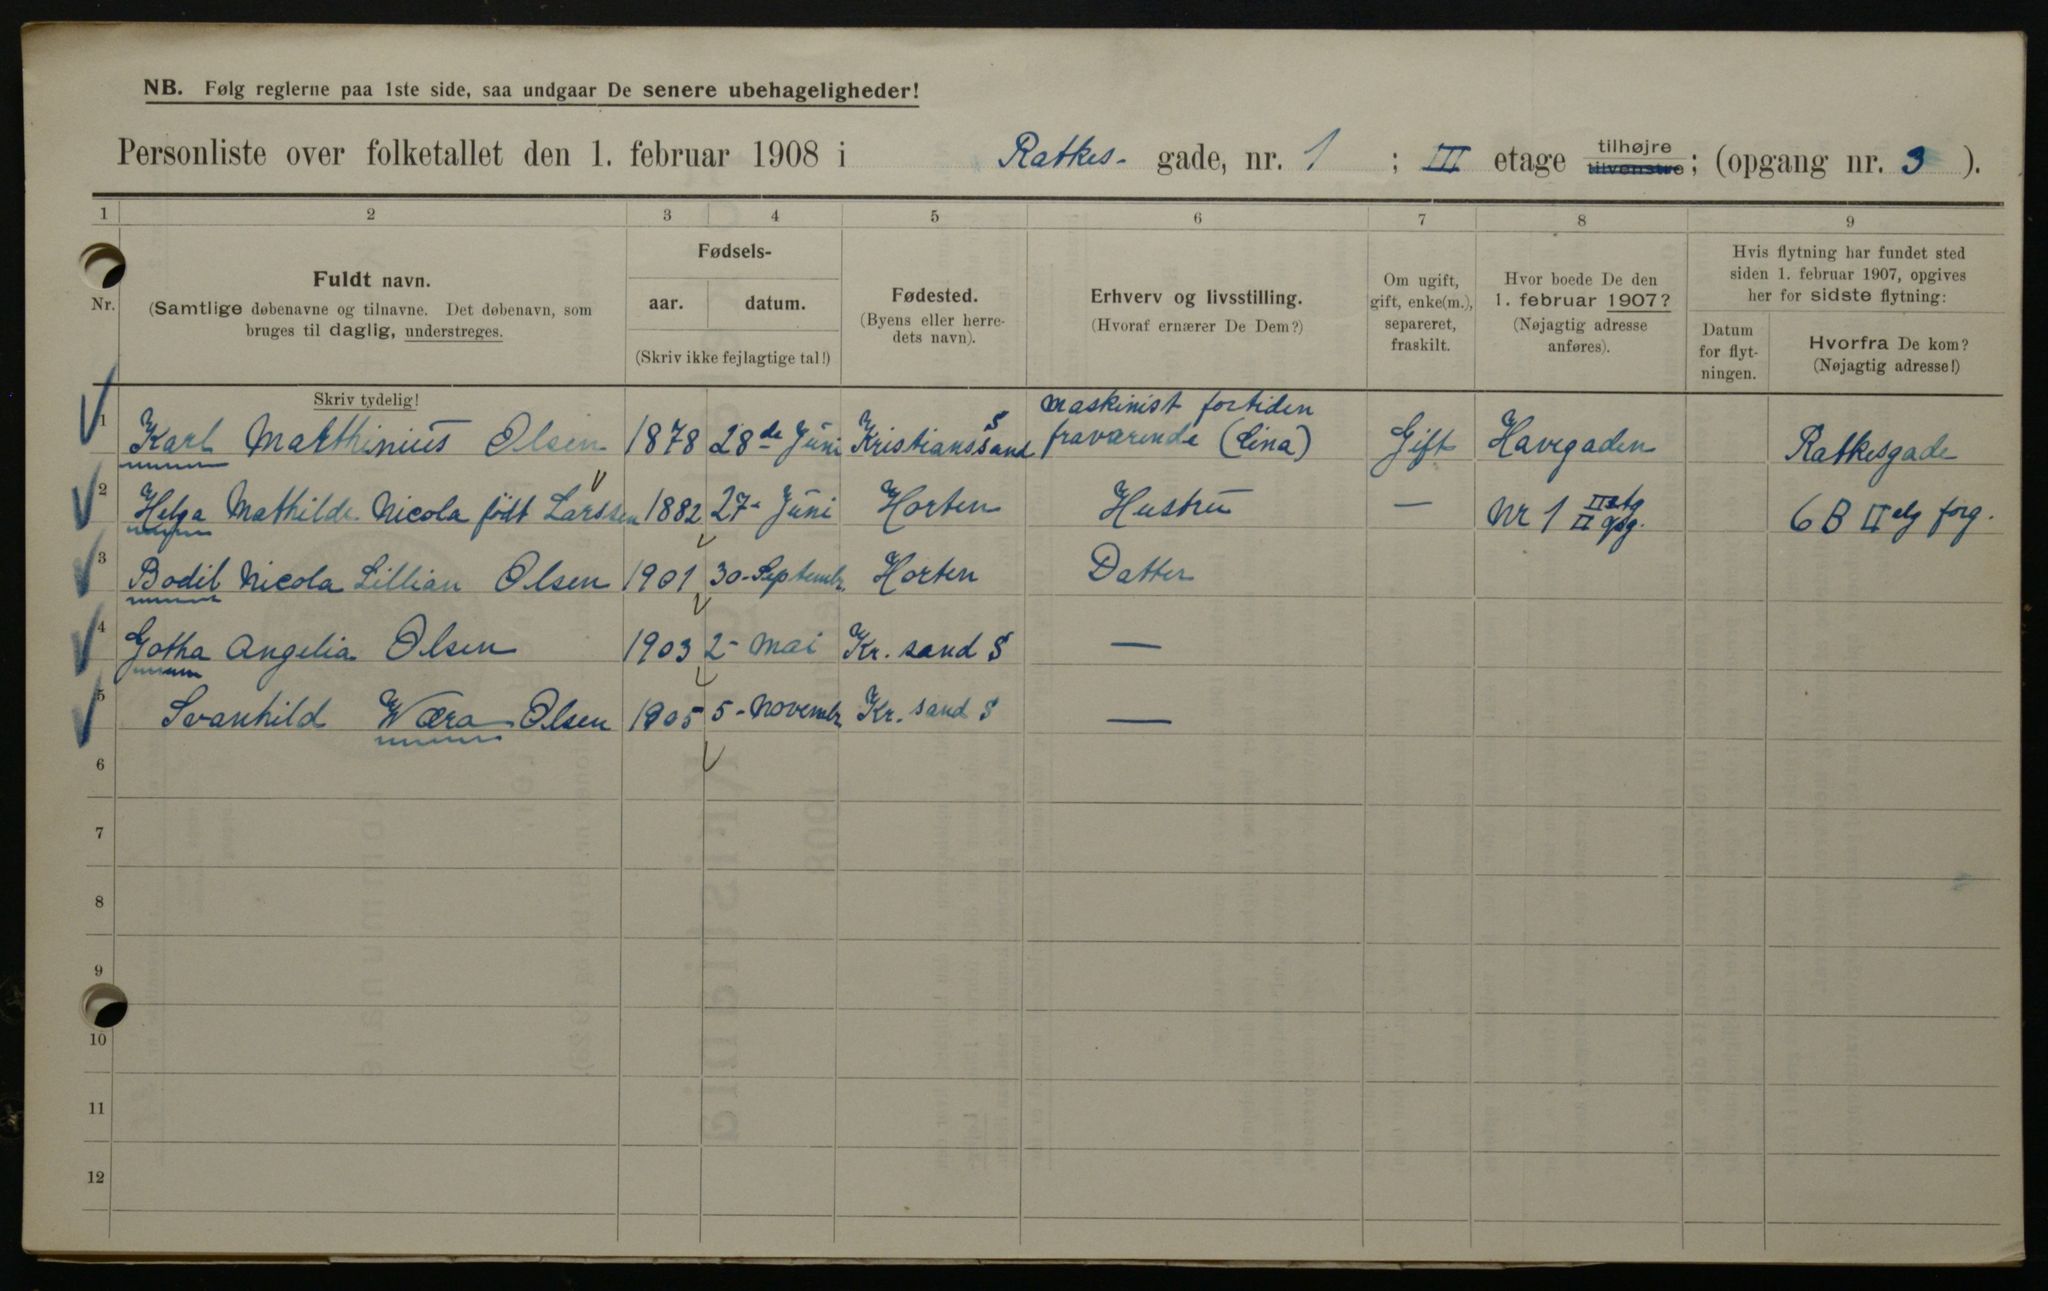 NB. Følg reglerne paa 1ste side, saa undgaar De senere ubehageligheder!
Personliste over folketallet den 1. februar 1908 i Ratkes- gade, nr. 1 ; III etage tilhøjre tilvenstre; (opgang nr. 3 ).
1 2 3 4 5 6 7 8 9
Nr.
Fuldt navn.
(Samtlige døbenavne og tilnavne. Det døbenavn, som
bruges til daglig, understreges.
Skriv tydelig!
Fødsels-
aar. datum.
(Skriv ikke fejlagtige tal!)
Fødested.
(Byens eller herre-
dets navn).
Erhverv og livsstilling.
(Hvoraf ernærer De Dem?)
Om ugift,
gift, enke(m.),
separeret,
fraskilt.
Hvor boede De den
1. februar 1907?
(Nøjagtig adresse
anføres).
Hvis flytning har fundet sted
siden 1. februar 1907, opgives
her for sidste flytning:
Datum
for flyt-
ningen.
Hvorfra De kom?
(Nøjagtig adresse!)
1 Karl Marthinius Olsen 1878 28de Juni Kristianssand S maskinist fortiden
fraværende (Kina) Gift Havegaden Ratkesgade
2 Helga Mathilde Nicola født Larssen 1882 27- Juni Horten Hustru — Nr 1 II etg II opg. 6 B II etg forg.
3 Bodil Nicola Lillian Olsen 1901 30-Septembr. Horten Datter
4 Gotha Angelia Olsen 1903 2- Mai Kr. sand S —
5 Svanhild Wæra Olsen 1905 5- Novembr Kr. sand S —
6
7
8
9
10
11
12